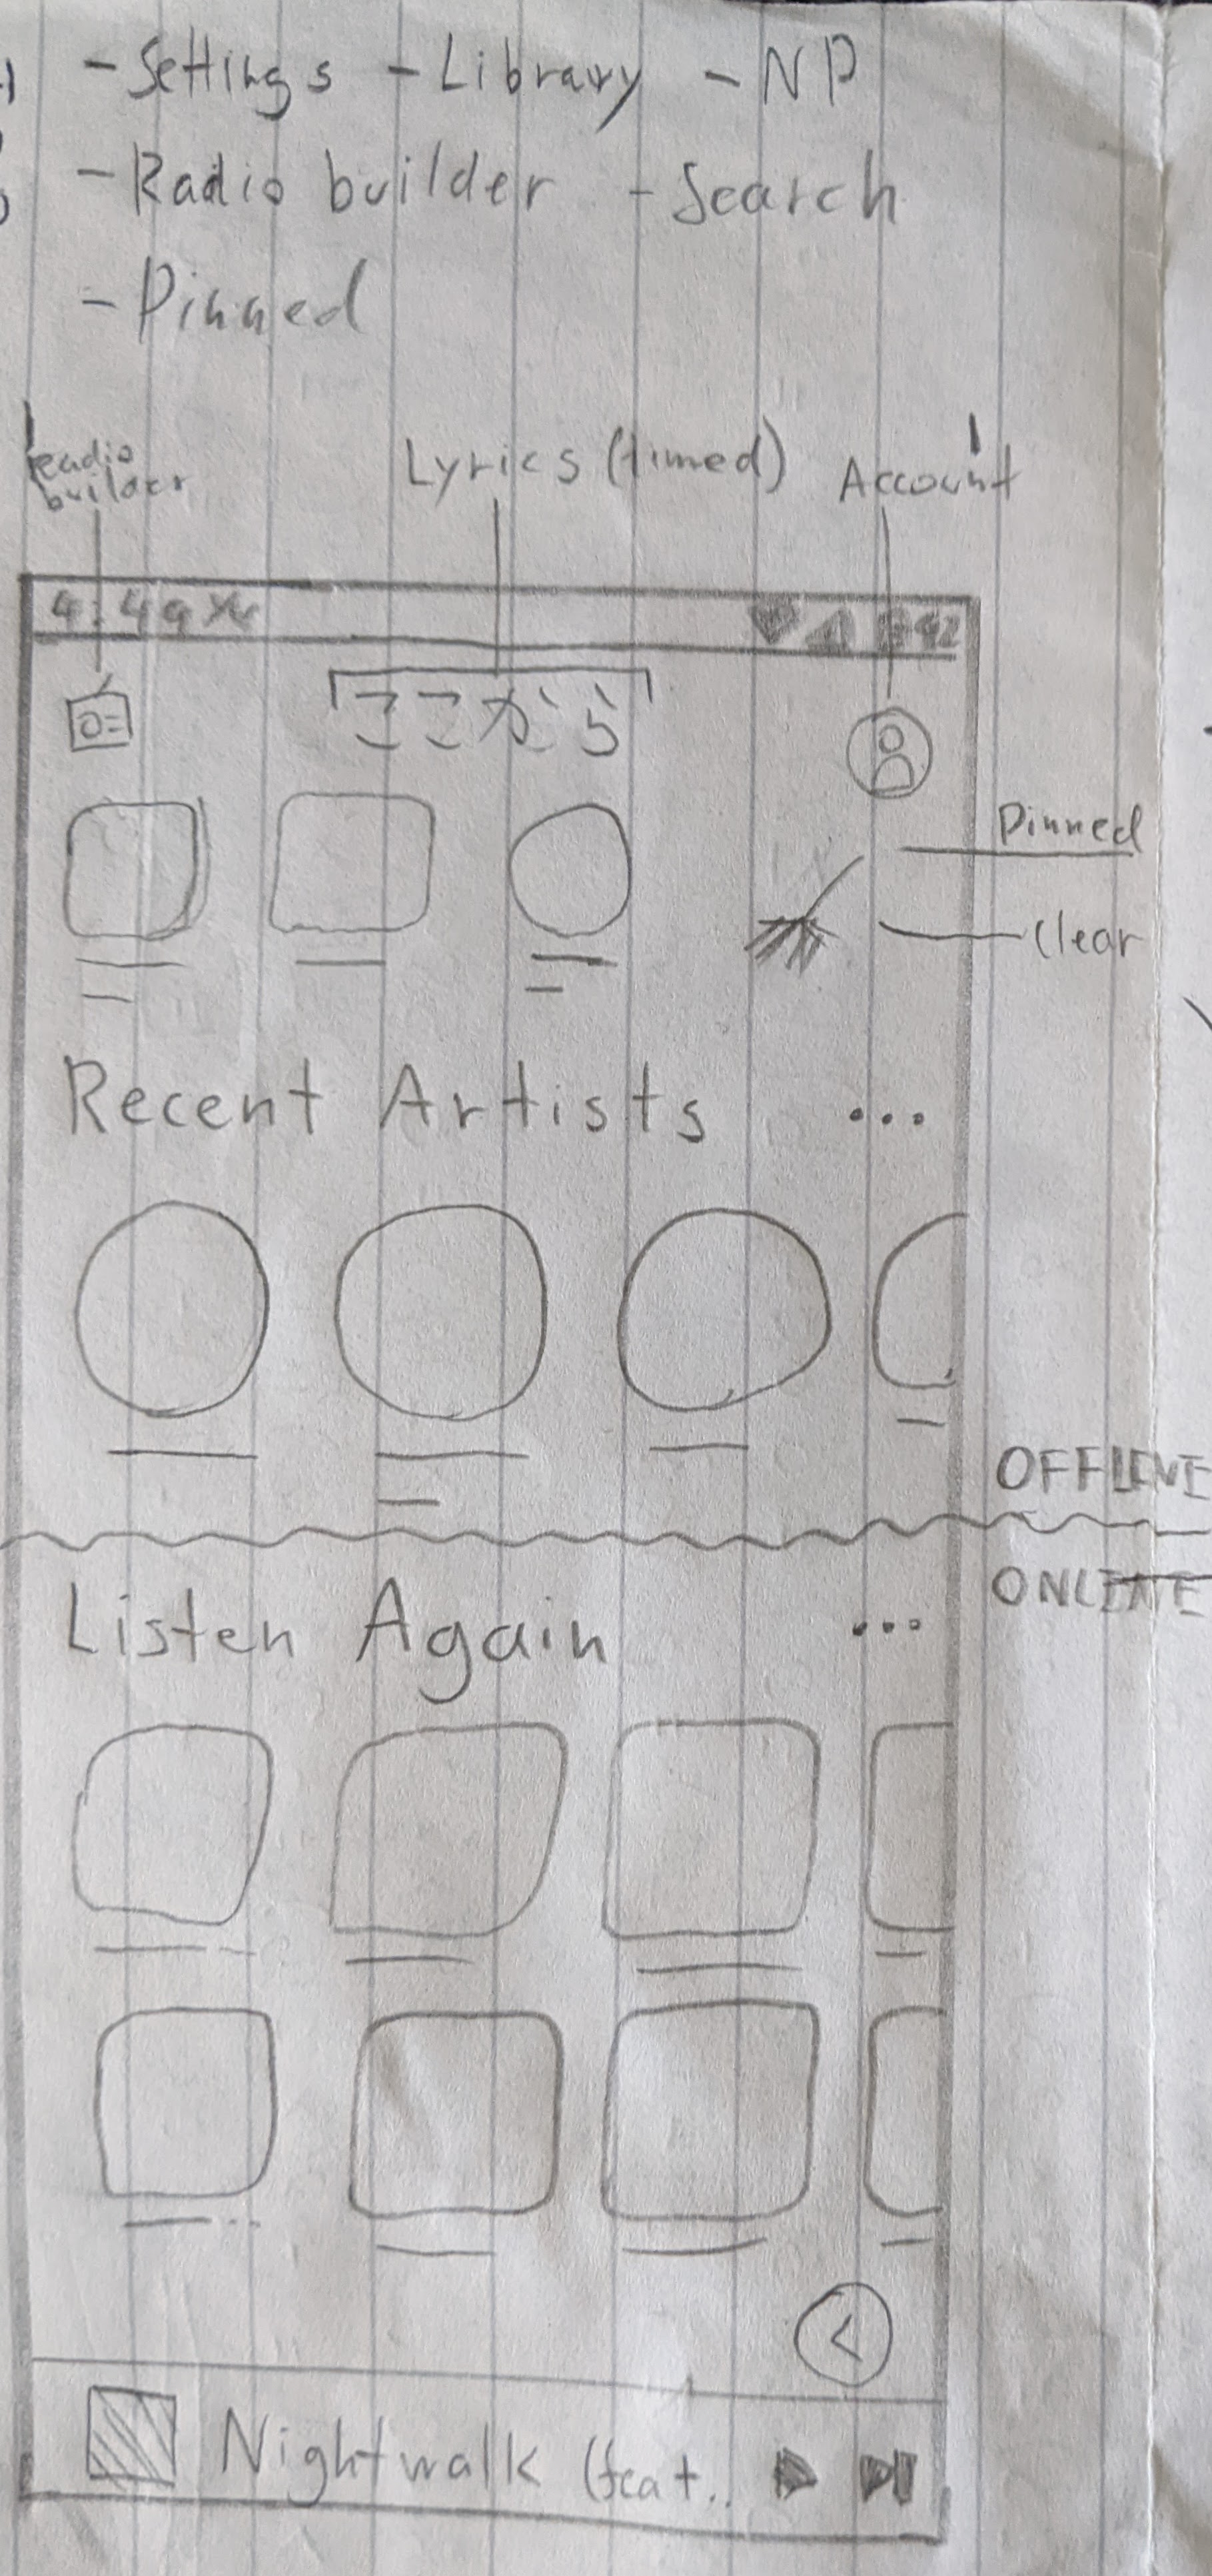 - Settings - Library - NP
- Radio builder - Search
- Pinned
Radio
builder
Lyrics (timed)
Account
4:49
42
ここから
Pinned
Clear
Recent Artists ...
OFFLINE
ONLINE
Listen Again ...
Nightwalk (feat..